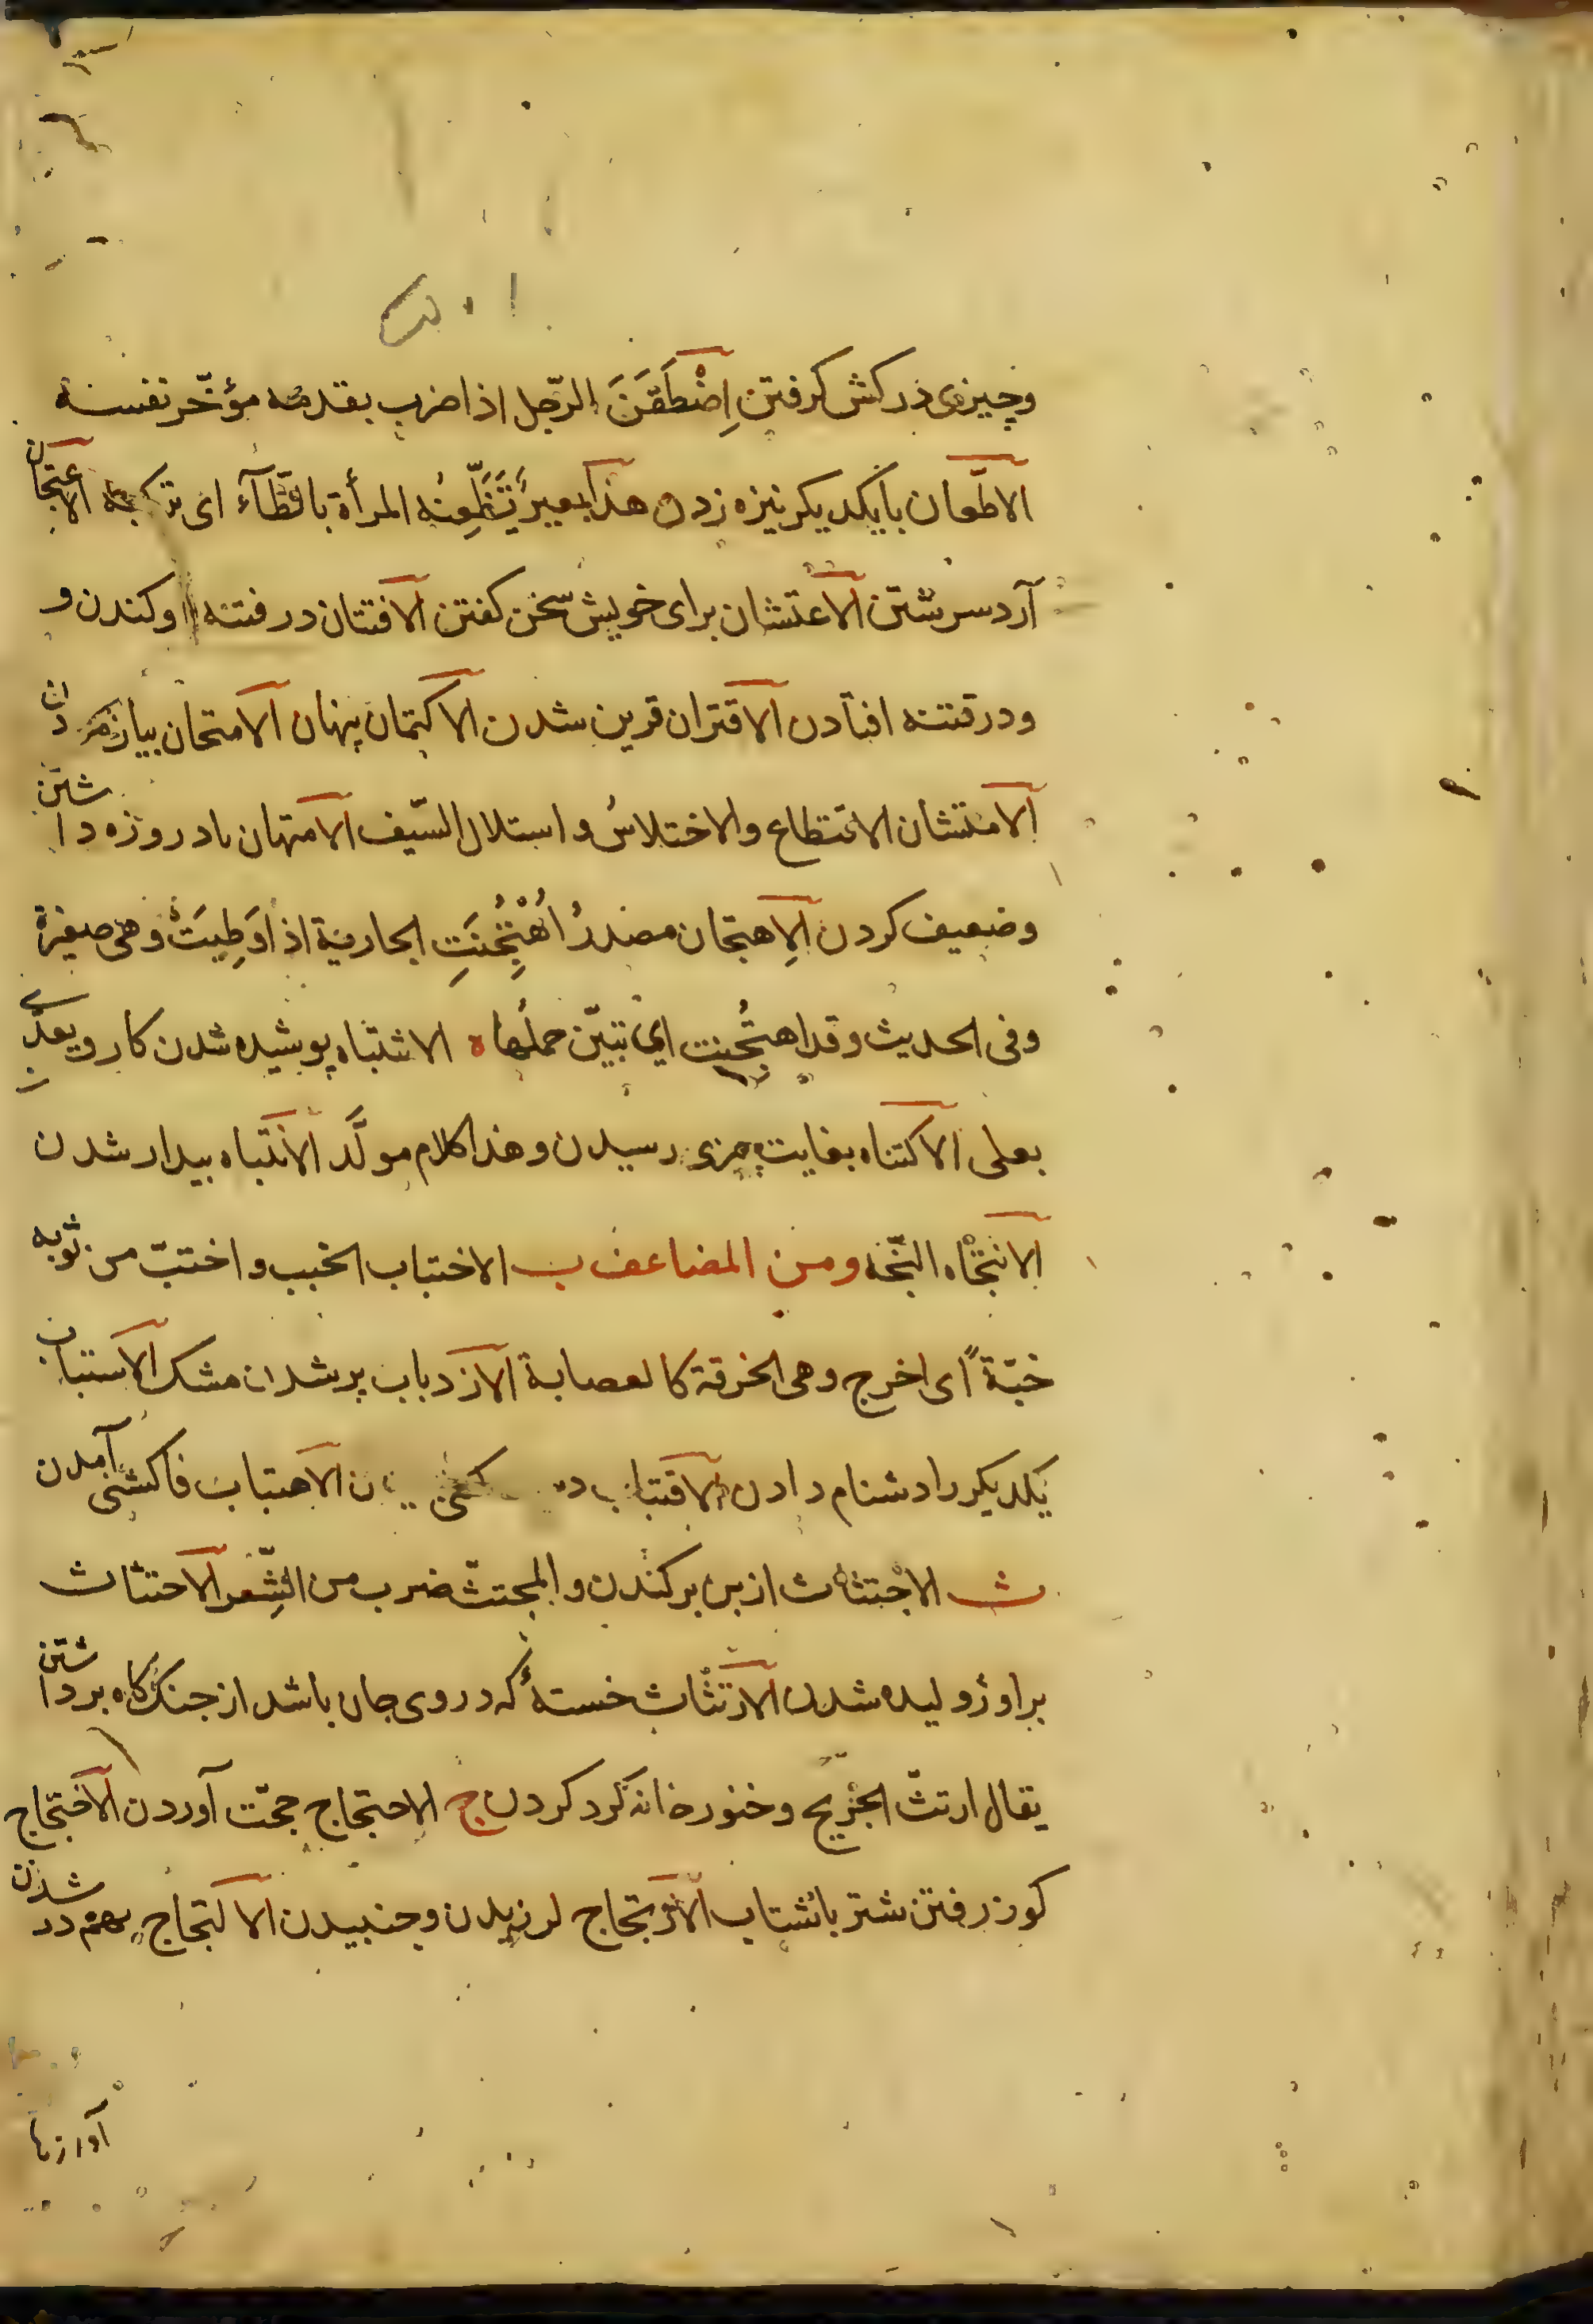 وچیزی در کش کرفتن اِضْطَغَنَ الرّجل اذا ضرب بقدمه مؤخّر نفسه
الاطّعان با یکدیکر نیزه زدن هذا بعیرٌ تَظَّعِنُه المرأة بالظّآء ای ترکبه الاعتجان
آرد سرشتن الاعتشان برای خویش سخن کفتن الافتتان در فتنه اوکندن و
ودر فتنه افتادن الاقتران قرین شدن الاکتمان پنهان الامتحان بیازمودن
الامتشان الاقتطاع والاختلاس و استلال السّیف الامتهان باد روزه داشتن
وضعیف کردن الاِهتجان مصدرُ اُهْتُجِنَتِ الجاریة اذا وَطِیَتْ وهی صغیرة
وفی الحدیث وقد اهتُجنت ای تبیّن حملُها ه الاشتباه پوشیده شدن کار ویعدّی
بعلی الاکتناه بغایت چیزی رسیدن وهذا کلام مولَّد الانتباه بیدار شدن
الانتجاه النّجه ومن المضاعف ب الاختباب الخبب و اختبّ من ثوبه
خبّةً ای اخرج وهی الخرقة کالعصابة الازدباب پر شدن مشک الاستباب
یکدیکر را دشنام دادن الاقتباب الاهتباب فاکشنی آمدن
ث الاجْتثاث از بن برکندن و المجتثّ ضرب من الشِّعر الاحتثاث
براوژولیده شدن الارتثاث خستهٔ که دروی جان باشد از جنک کاه برداشتن
یقال ارتثّ الجَریح وخنور خانه کرد کردن ج الاحتجاج حجّت آوردن الافتجاج
کوز رفتن شتر بانشتاب الارتجاج لرزیدن وجنبیدن الالتجاج بهم در شدن
آوازها